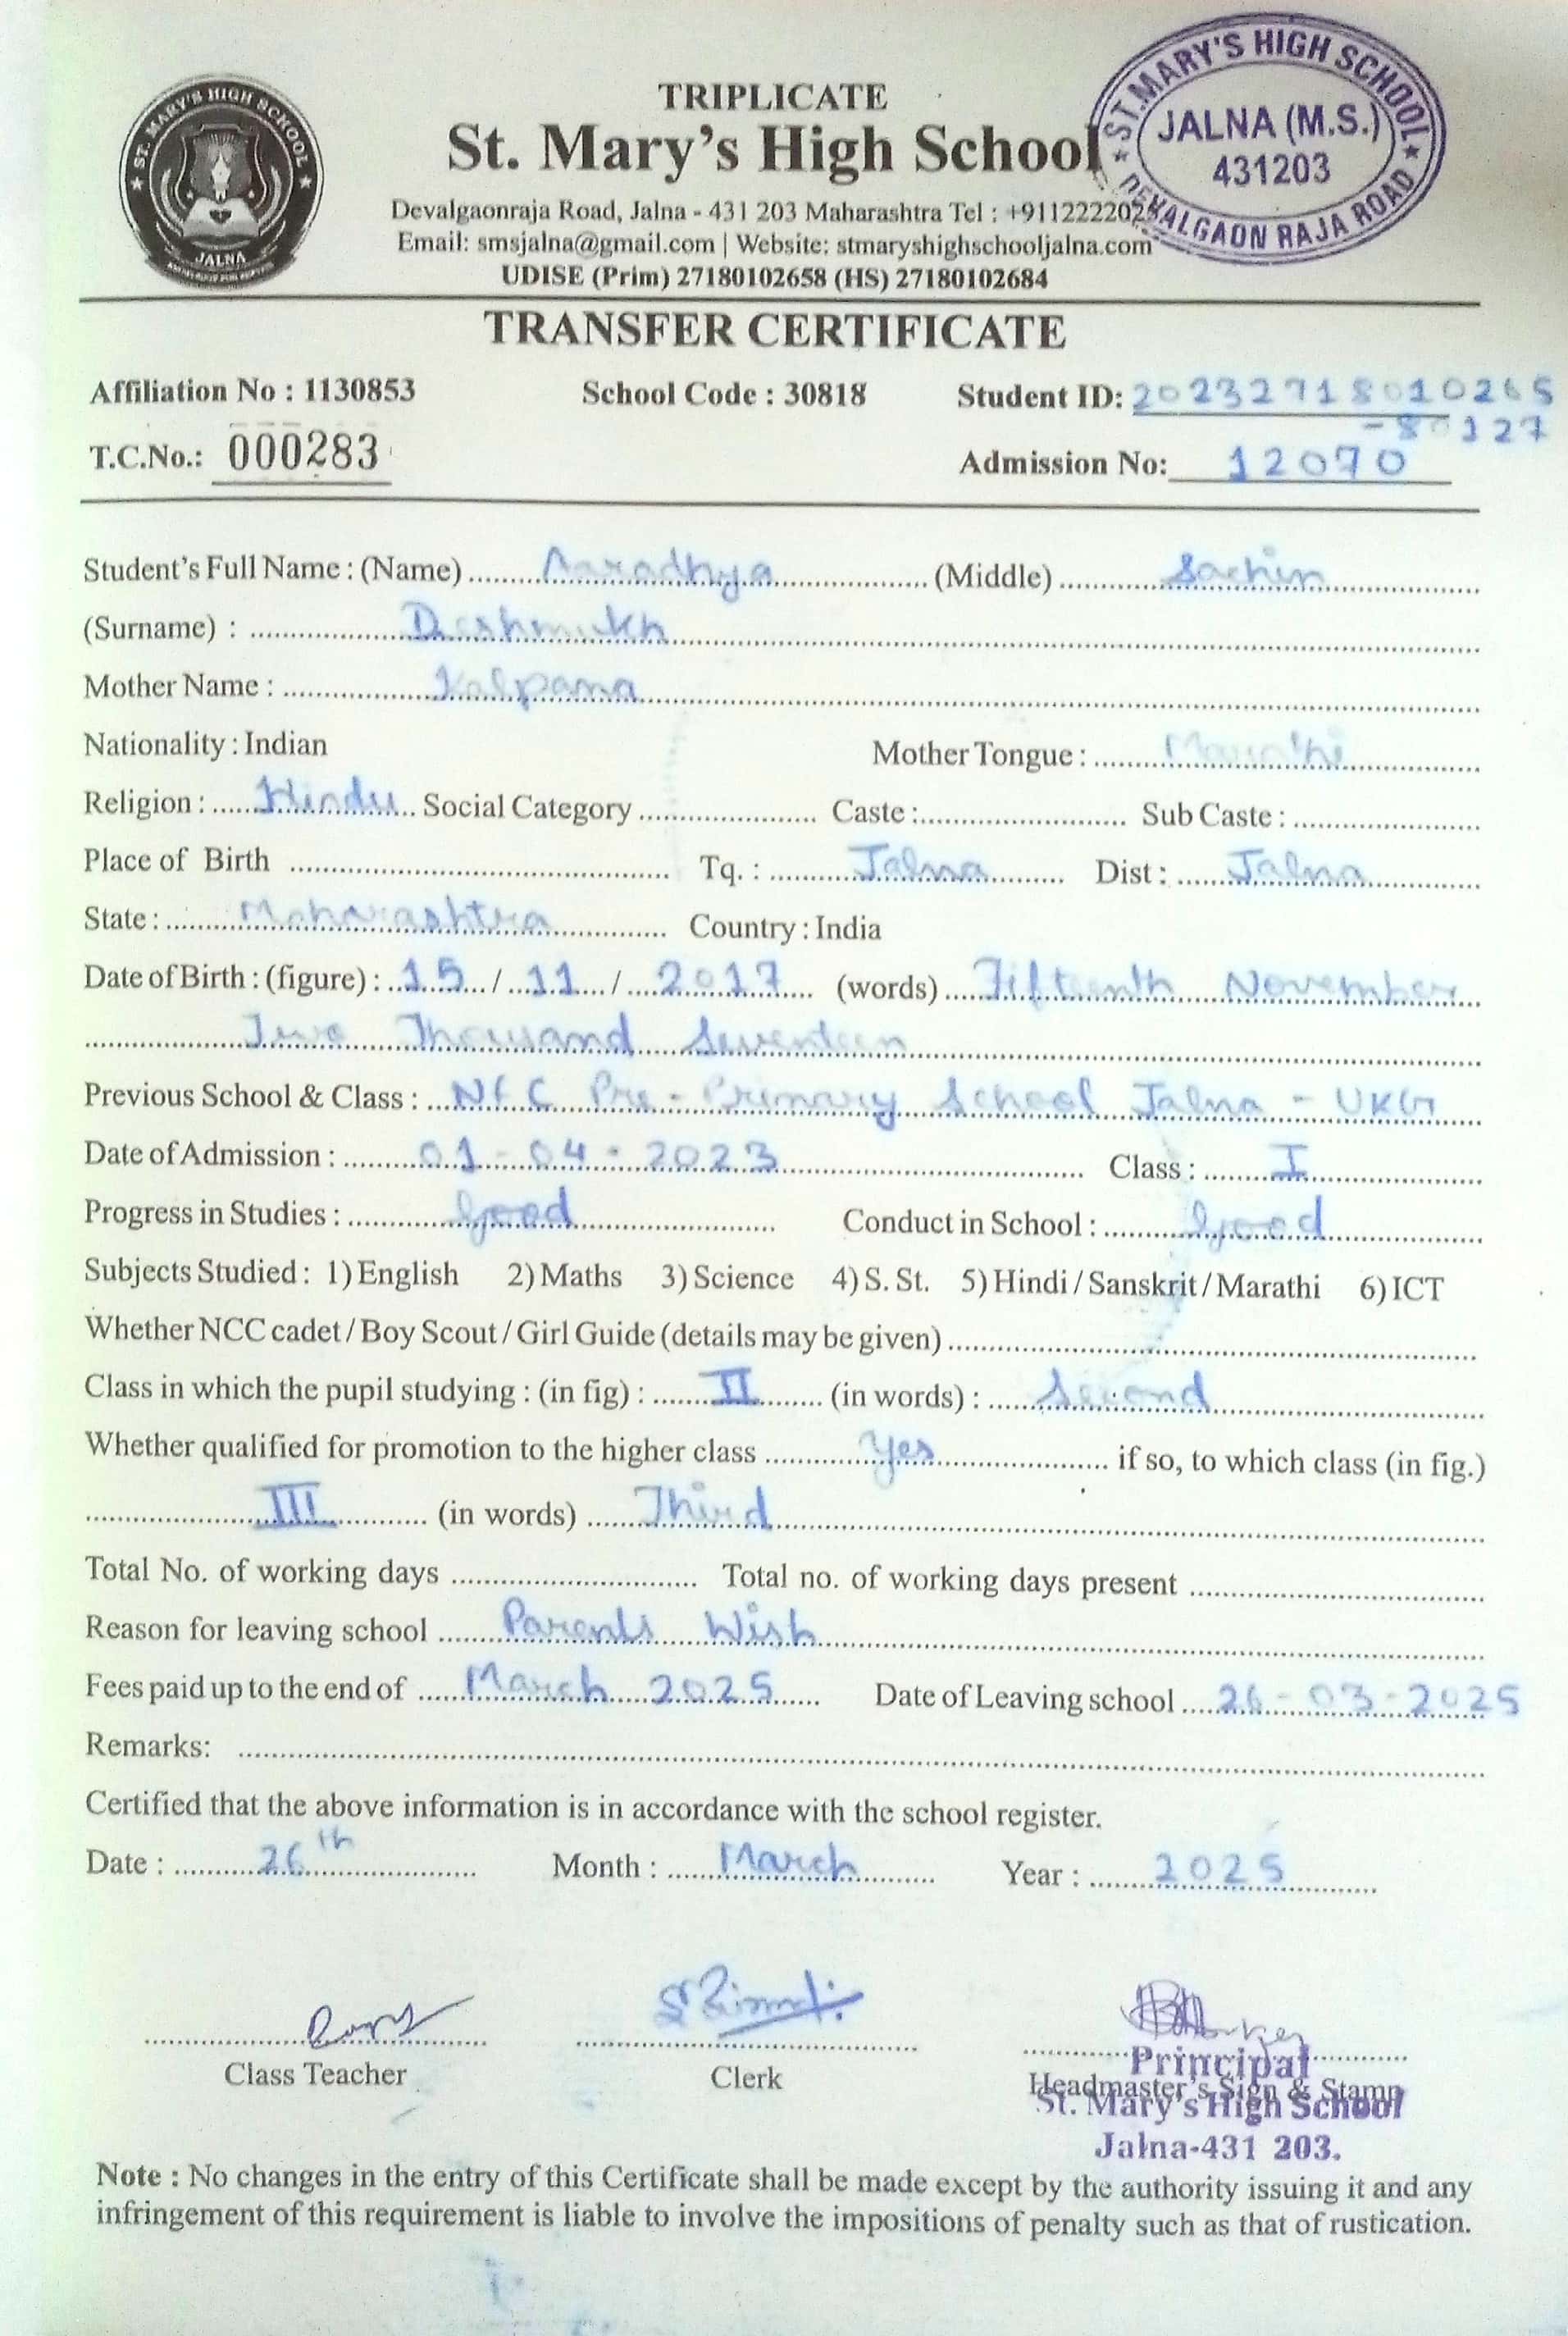 TRIPLICATE
St. Mary's High School
Devalgaonraja Road, Jalna - 431 203 Maharashtra Tel : +9112222025
Email: smsjalna@gmail.com | Website: stmaryshighschooljalna.com
UDISE (Prim) 27180102658 (HS) 27180102684
ST. MARY'S HIGH SCHOOL
JALNA
ST. MARY'S HIGH SCHOOL
JALNA (M.S.)
431203
DEVALGAON RAJA ROAD
TRANSFER CERTIFICATE
Affiliation No : 1130853 School Code : 30818 Student ID: 20232718010265
-80127
T.C.No.: 000283 Admission No: 12070
Student's Full Name : (Name) Aaradhya (Middle) Sachin
(Surname) : Deshmukh
Mother Name : Kalpana
Nationality : Indian Mother Tongue : Marathi
Religion : Hindu Social Category Caste : Sub Caste :
Place of Birth Tq. : Jalna Dist : Jalna
State : Maharashtra Country : India
Date of Birth : (figure) : 15 / 11 / 2017 (words) Fifteenth November
Two Thousand Seventeen
Previous School & Class : Pre - Primary School Jalna - UKG
Date of Admission : 01 - 04 - 2023 Class : I
Progress in Studies : Good Conduct in School : Good
Subjects Studied : 1) English 2) Maths 3) Science 4) S. St. 5) Hindi / Sanskrit / Marathi 6) ICT
Whether NCC cadet / Boy Scout / Girl Guide (details may be given)
Class in which the pupil studying : (in fig) : II (in words) : Second
Whether qualified for promotion to the higher class Yes if so, to which class (in fig.)
III (in words) Third
Total No. of working days Total no. of working days present
Reason for leaving school Parents Wish
Fees paid up to the end of March 2025 Date of Leaving school 26-03-2025
Remarks:
Certified that the above information is in accordance with the school register.
Date : 26th Month : March Year : 2025
Class Teacher Clerk Headmaster's Sign & Stamp
Principal
St. Mary's High School
Jalna-431 203.
Note : No changes in the entry of this Certificate shall be made except by the authority issuing it and any
infringement of this requirement is liable to involve the impositions of penalty such as that of rustication.